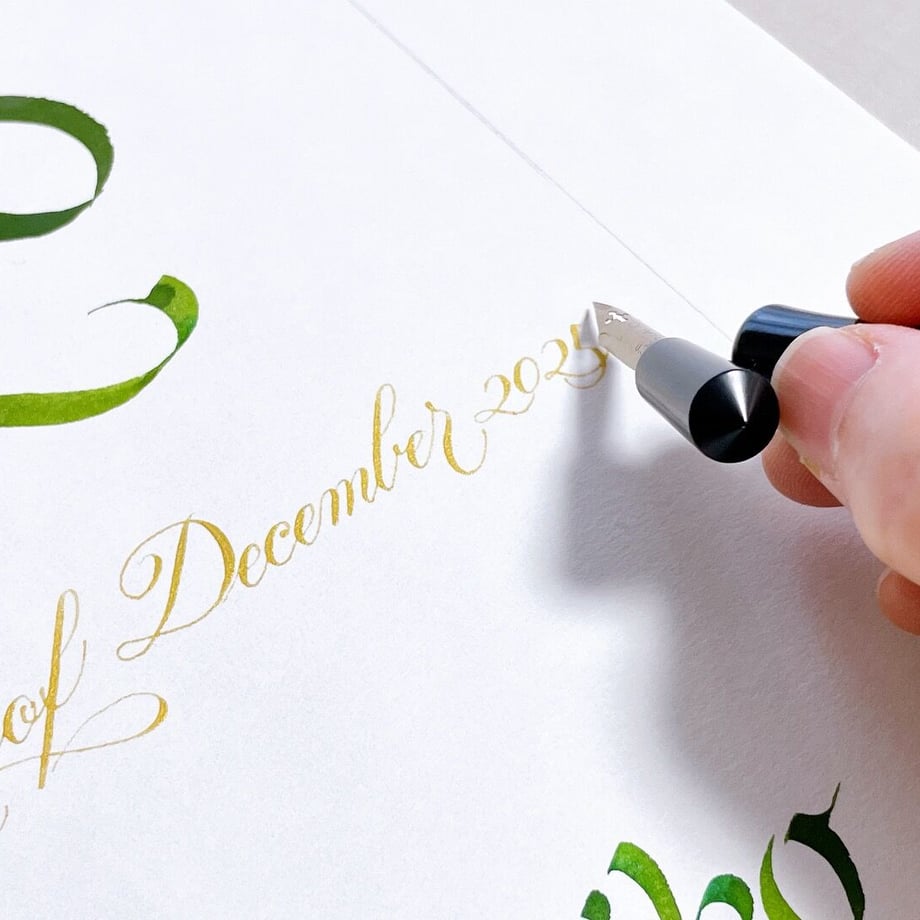 of December 2025